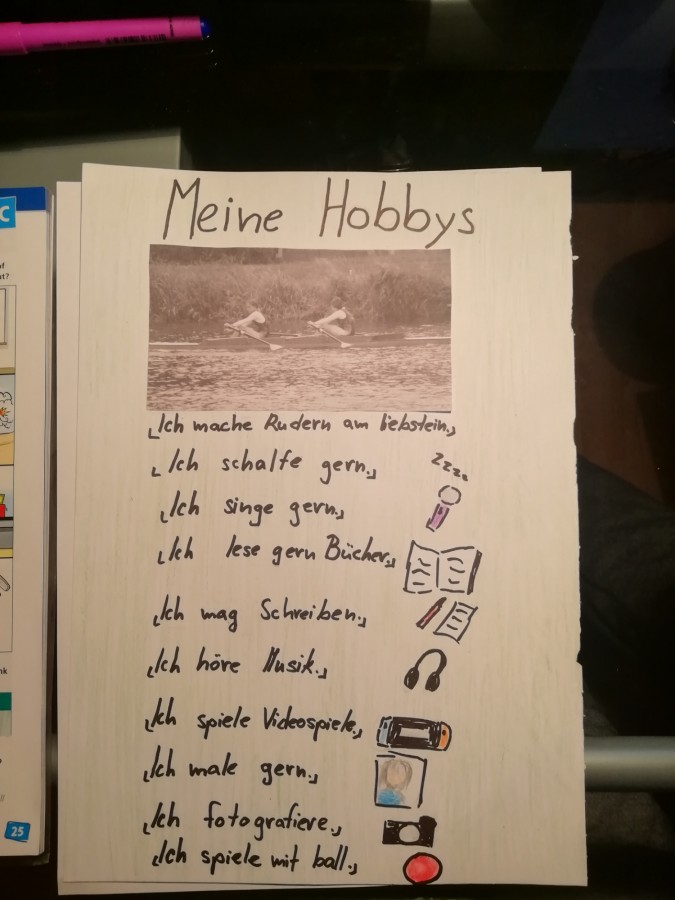 Meine Hobbys
Ich mache Rudern am liebstein.
Ich schalfe gern.
zzzz
Ich singe gern.
Ich lese gern Bücher.
Ich mag Schreiben.
Ich höre Musik.
Ich spiele Videospiele.
Ich male gern.
Ich fotografiere.
Ich spiele mit ball.
C
25